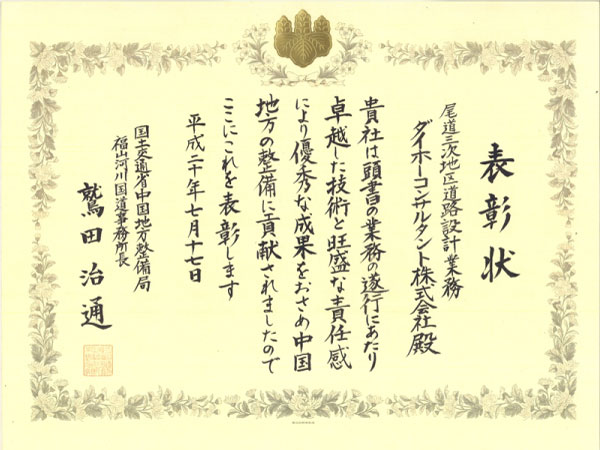 表彰状
尾道三次地区道路設計業務
ダイホーコンサルタント株式会社殿
貴社は頭書の業務の遂行にあたり
卓越した技術と旺盛な責任感
により優秀な成果をおさめ中国
地方の整備に貢献されましたので
ここにこれを表彰します
平成二十年七月十七日
国土交通省中国地方整備局
福山河川国道事務所長
鷲田治通